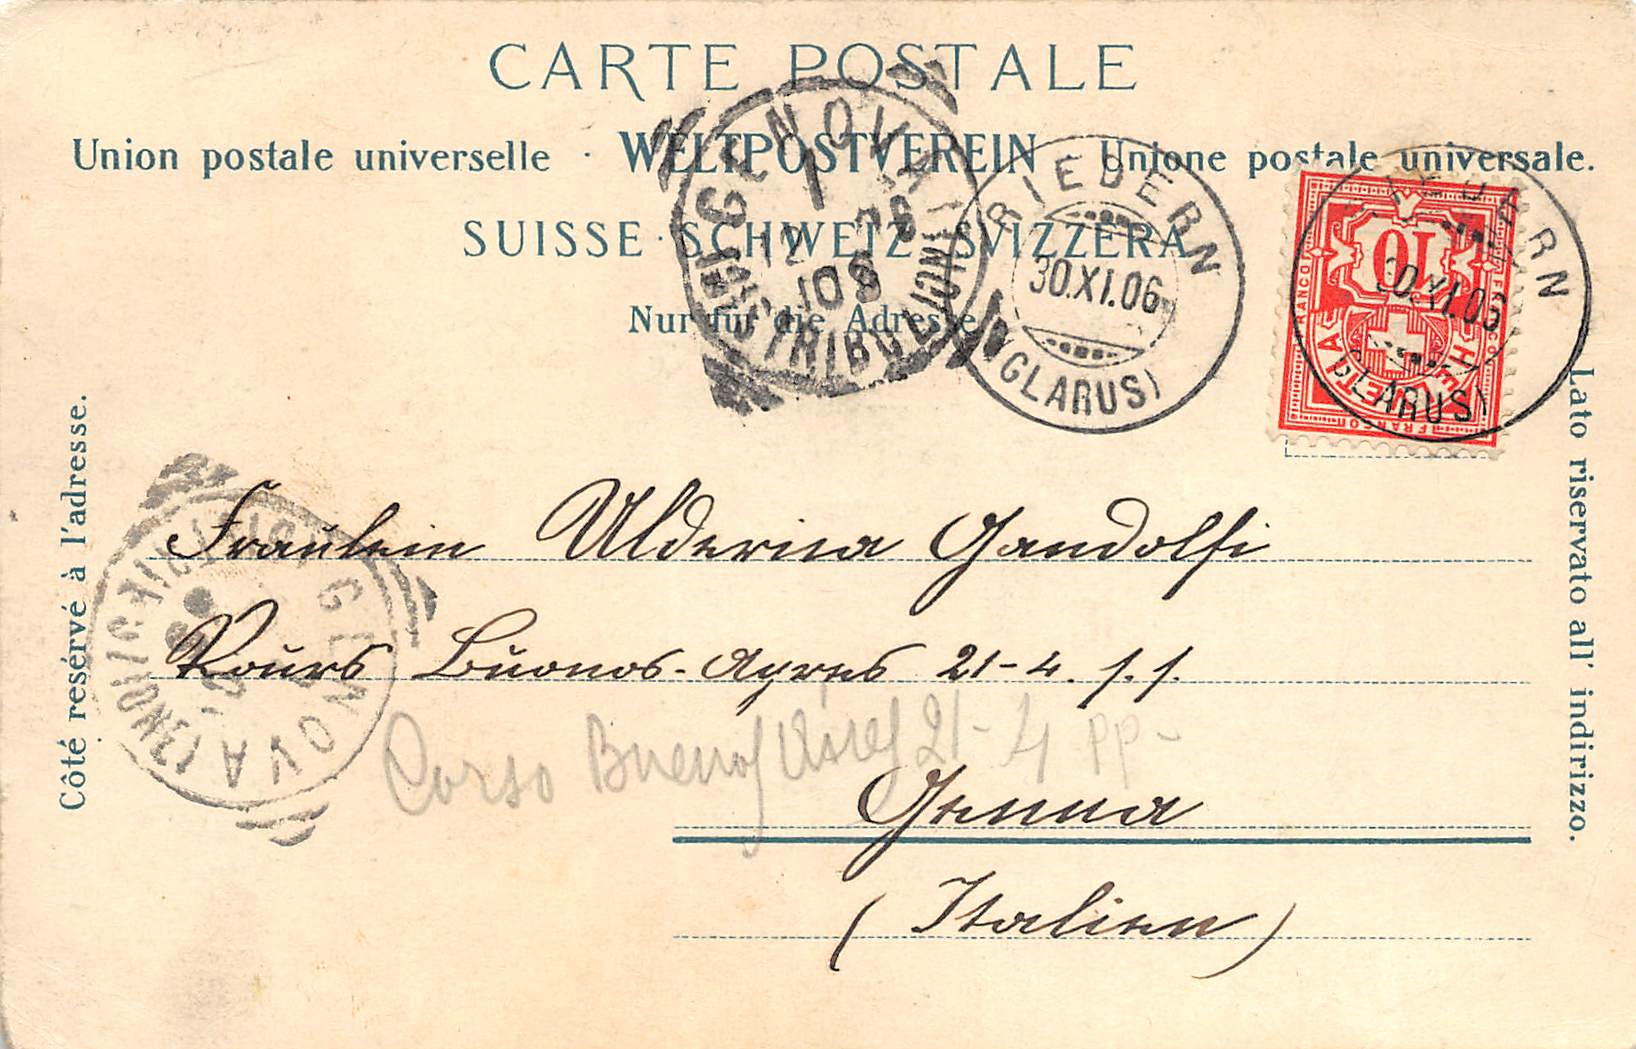 CARTE POSTALE
Union postale universelle · WELTPOSTVEREIN · Unione postale universale.
SUISSE · SCHWEIZ · SVIZZERA
Nur für die Adresse
Côté resérvé à l'adresse.
Lato riservato all' indirizzo.
GENOVA
12
RIEDERN
30.XI.06
(GLARUS)
RIEDERN
30.XI.06
(GLARUS)
FRANCO
10
HELVETIA
FRANCO
Fräulein Ulderica Gandolfi
Kours Buonos-Ayres 21-4. s.s.
Corso Buenos Aires 21-4 pp-
Genua
(Italien)
GENOVA